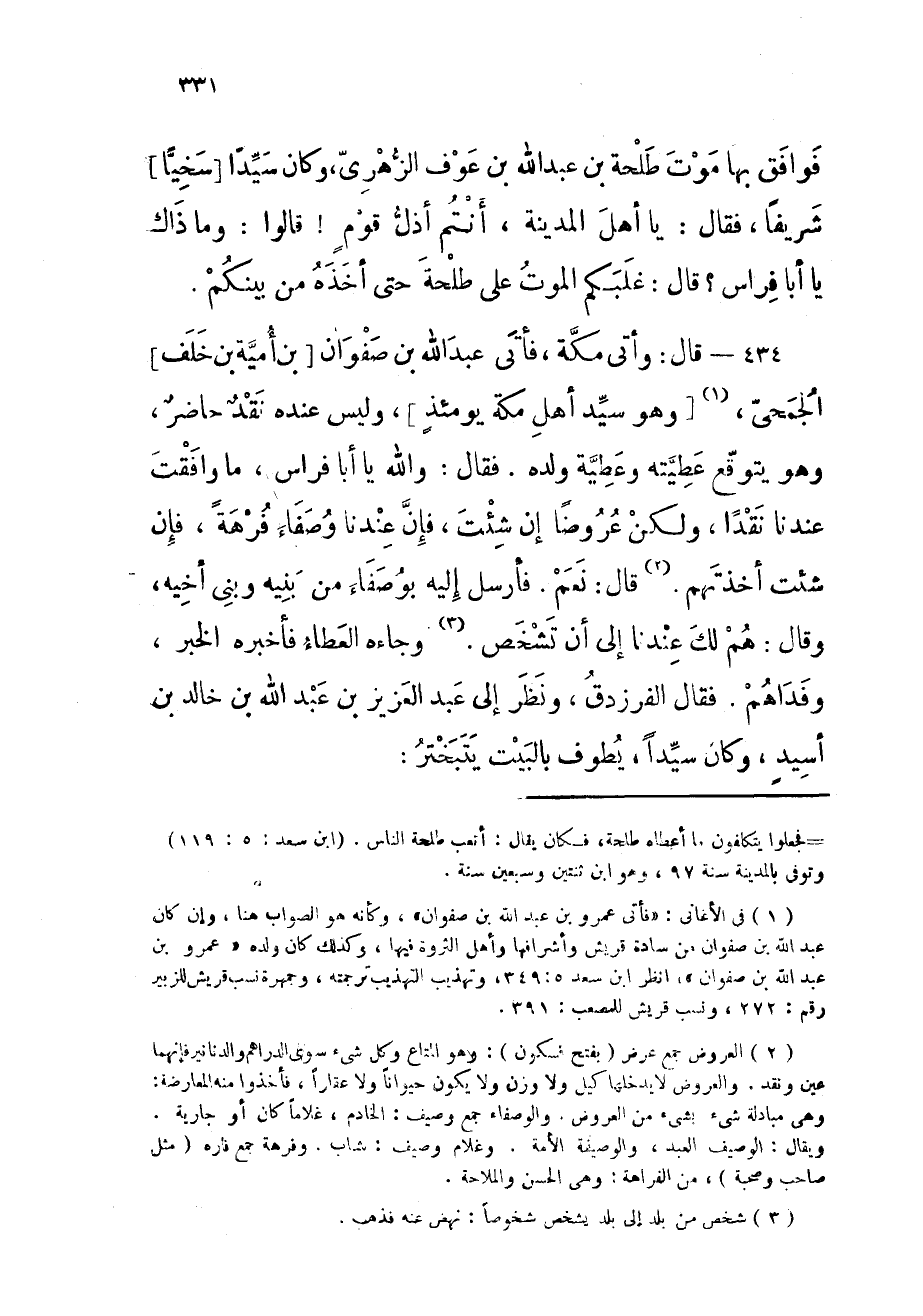 ٣٣١
فَوافَق بها مَوْتَ طَلْحة بن عبدالله بن عَوْف الزُّهْرِىّ، وكان سَيِّدًا [سَخِيًّا]
شَرِيفًا، فقال : يا أهلَ المدينة ، أَنْتُم أذلُّ قوْمٍ ! قالوا : وما ذَاك
يا أبا فِراس ؟ قال : غلَبَكم الموتُ على طلْحةَ حتى أخَذَهُ من بينكُمْ .
٤٣٤ — قال : وأتى مكَّة ، فأتَى عبدَالله بن صَفْوَان [ بن أُميَّة بن خَلَف ]
الجُمَحىّ ، (١) [ وهو سيِّد أهلِ مكة يومئذٍ ] ، وليس عنده نَقْدٌ حاضرٌ ،
وهو يتوقّع عَطِيَّته وعَطِيَّة ولده . فقال : والله يا أبا فراس ، ما وافَقْتَ
عندنا نَقْدًا ، ولكنْ عُرُوضًا إن شِئْتَ ، فإنَّ عِنْدنا وُصَفَاءَ فُرْهَةً ، فإن
شئت أخذتَهم . (٢) قال : نَعَمْ . فأرسل إليه بوُصَفَاءَ من بَنِيه وبنِى أخيه،
وقال : هُمْ لكَ عِنْدنا إلى أن تَشْخَص . (٣) وجاءه العَطاء فأخبره الخبر ،
وفَدَاهُمْ . فقال الفرزدقُ ، ونَظَرَ إلى عَبد العَزيز بن عَبْد الله بن خالد بن
أسِيدٍ ، وكان سيِّداً ، يُطوف بالبَيْت يَتَبَخْترُ :
=فجعلوا يتكلفون ما أعطاه طلحة، فكان يقال : أتعب طلحة الناس . (ابن سعد : ٥ : ١١٩)
وتوفى بالمدينة سنة ٩٧ ، وهو ابن ثنتين وسبعين سنة .
( ١ ) فى الأغانى : «فأتى عمرو بن عبد الله بن صفوان» ، وكأنه هو الصواب هنا ، وإن كان
عبد الله بن صفوان من سادة قريش وأشرافها وأهل الثروة فيها ، وكذلك كان ولده « عمرو بن
عبد الله بن صفوان »، انظر ابن سعد ٥ : ٣٤٩، وتهذيب التهذيب ترجمته ، وجمهرة نسب قريش للزبير
رقم : ٢٧٢ ، ونسب قريش للمصعب : ٣٩١ .
( ٢ ) العروض جمع عرض ( بفتح فسكون ) : وهو المتاع وكل شىء سوى الدراهم والدنانير فإنهما
عين ونقد . والعروض لا يدخلها كيل ولا وزن ولا يكون حيواناً ولا عقاراً ، فأخذوا منه المعارضة :
وهى مبادلة شىء بشىء من العروض . والوصفاء جمع وصيف : الخادم ، غلاماً كان أو جارية .
ويقال : الوصيف العبد ، والوصيفة الأمة . وغلام وصيف : شاب . وفرهة جمع فاره ( مثل
صاحب وصحبة ) ، من الفراهة : وهى الحسن والملاحة .
( ٣ ) شخص من بلد إلى بلد يشخص شخوصاً : نهض عنه فذهب .